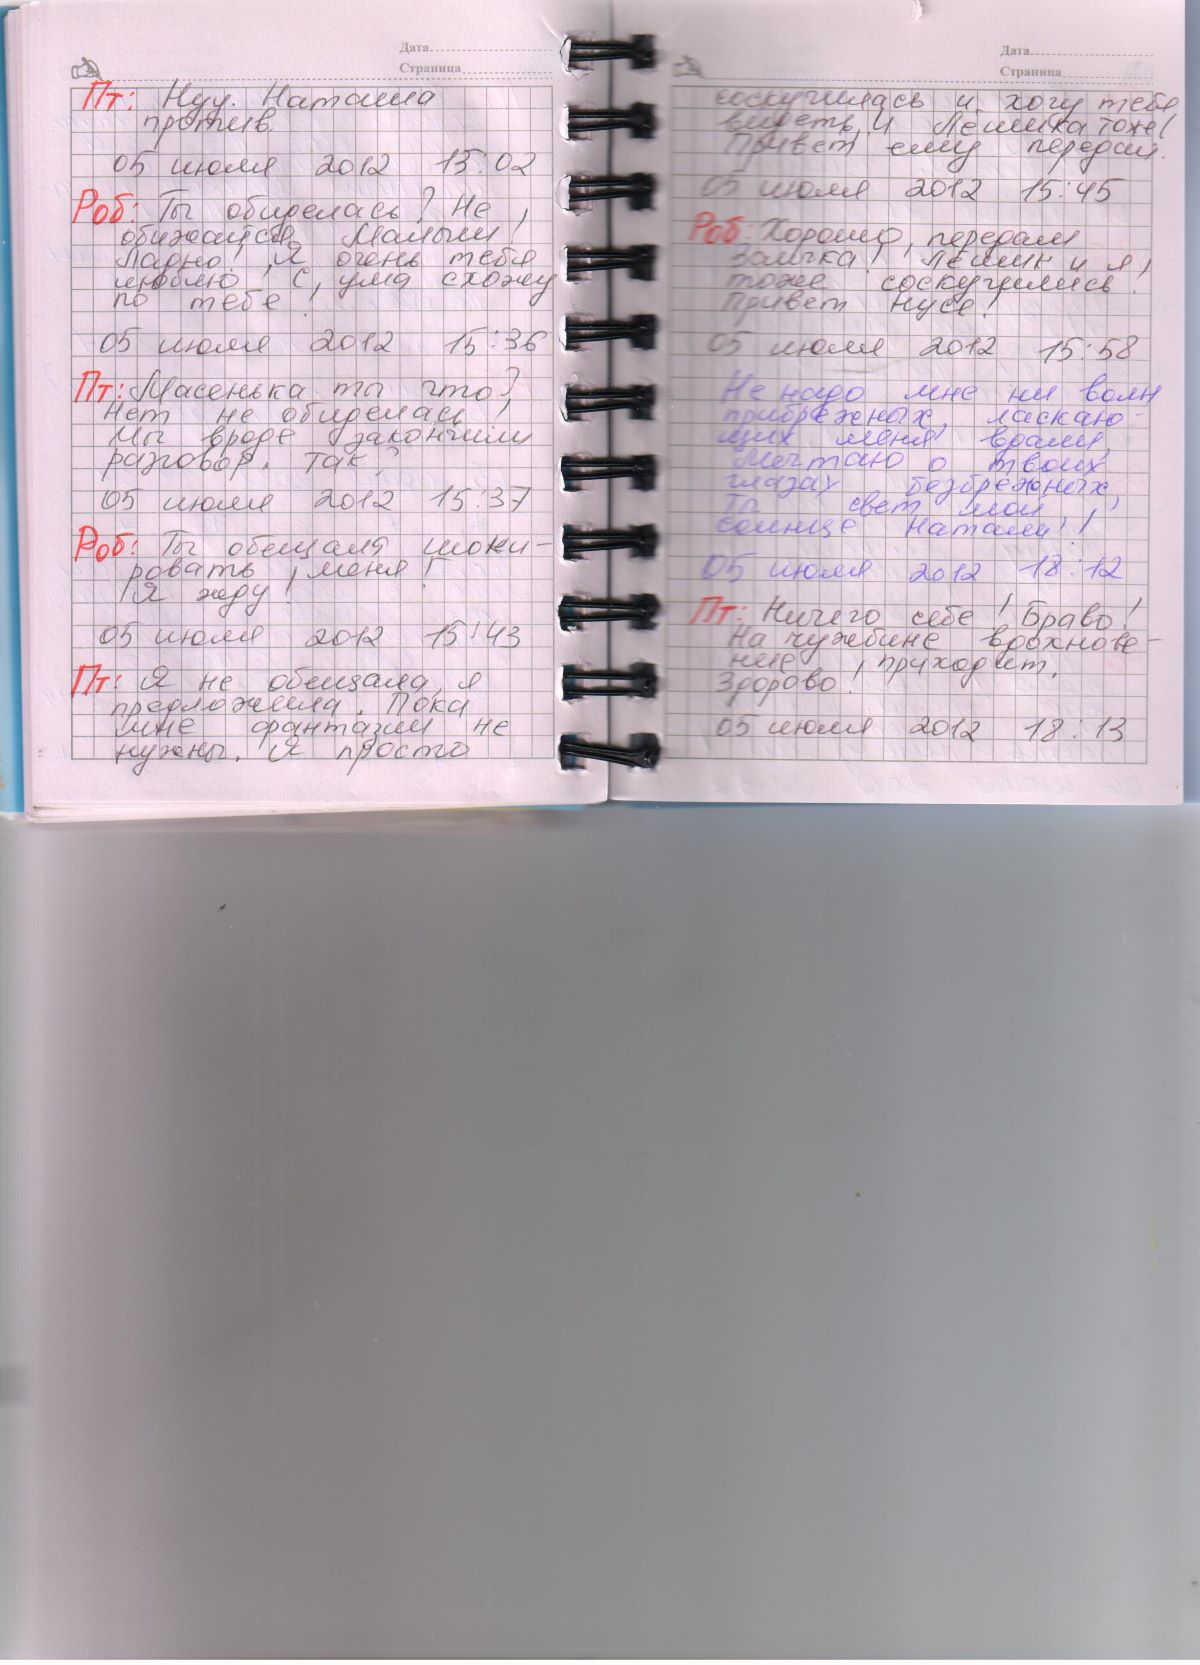 Дата
Страница
Пт: Нуу. Наташа
против.
05 июля 2012 15:02
Роб: Ты обиделась? Не
обижайся, Малыш!
Ладно! Я очень тебя
люблю! С ума схожу
по тебе!
05 июля 2012 15:36
Пт: Масенька ты что?
Нет не обиделась!
Мы вроде закончили
разговор. Так?
05 июля 2012 15:37
Роб: Ты обещала шоки-
ровать меня!
Я жду!
05 июля 2012 15:43
Пт: Я не обещала, я
предложила. Пока
мне фантазии не
нужны. Я просто
Дата
Страница
соскучилась и хочу тебя
видеть, и Лёшика тоже!
Привет ему передай.
05 июля 2012 15:45
Роб: Хорошо, передам
Заичка! Лёшик и я
тоже соскучились!
Привет Нусе!
05 июля 2012 15:58
Не надо мне ни волн
прибрежных, ласкаю-
щих меня вдали,
Мечтаю о твоих
глазах безбрежных,
Ты свет мой,
солнце Натали!
05 июля 2012 18:12
Пт: Ничего себе! Браво!
На чужбине вдохнове-
ние приходит.
Здорово!
05 июля 2012 18:13